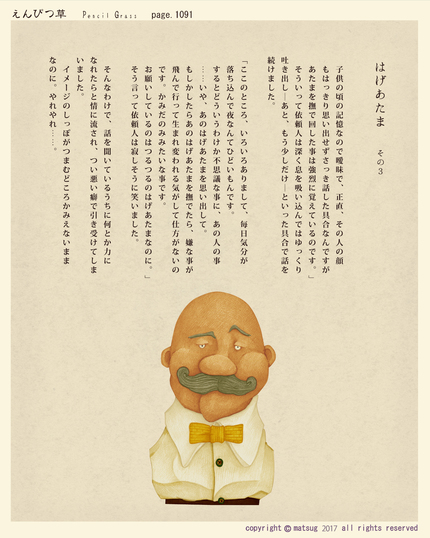 えんぴつ草 Pencil Grass page.1091
はげあたま その３
子供の頃の記憶なので曖昧で、正直、その人の顔
もはっきり思い出せずさっき話した具合なんですが
あたまを撫で回した事は強烈に覚えているのです。」
そういって依頼人は深く息を吸い込んではゆっくり
吐き出し―あと、もう少しだけ―といった具合で話を
続けました。
「ここのところ、いろいろありまして、毎日気分が
落ち込んで夜なんてひどいもんです。
するとどういうわけか不思議な事に、あの人の事
……いや、あのはげあたまを思い出して。
もしかしたらあのはげあたまを撫でたら、嫌な事が
飛んで行って生まれ変われる気がして仕方がないの
です。かみだのみみたいな事です。
お願いしているのはつるつるのはげあたまなのに。」
そう言って依頼人は寂しそうに笑いました。
そんなわけで、話を聞いているうちに何とか力に
なれたらと情に流され、つい悪い癖で引き受けてしま
いました。
イメージのしっぽがつまむどころかみえないまま
なのに。やれやれ……。
copyright © matsug 2017 all rights reserved